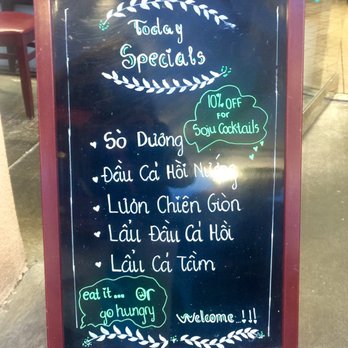 Today
Specials
10% OFF
for
Soju Cocktails
Sò Dương
Đầu Cá Hồi Nướng
Lươn Chiên Giòn
Lẩu Đầu Cá Hồi
Lẩu Cá Tầm
eat it... or
go hungry
Welcome !!!